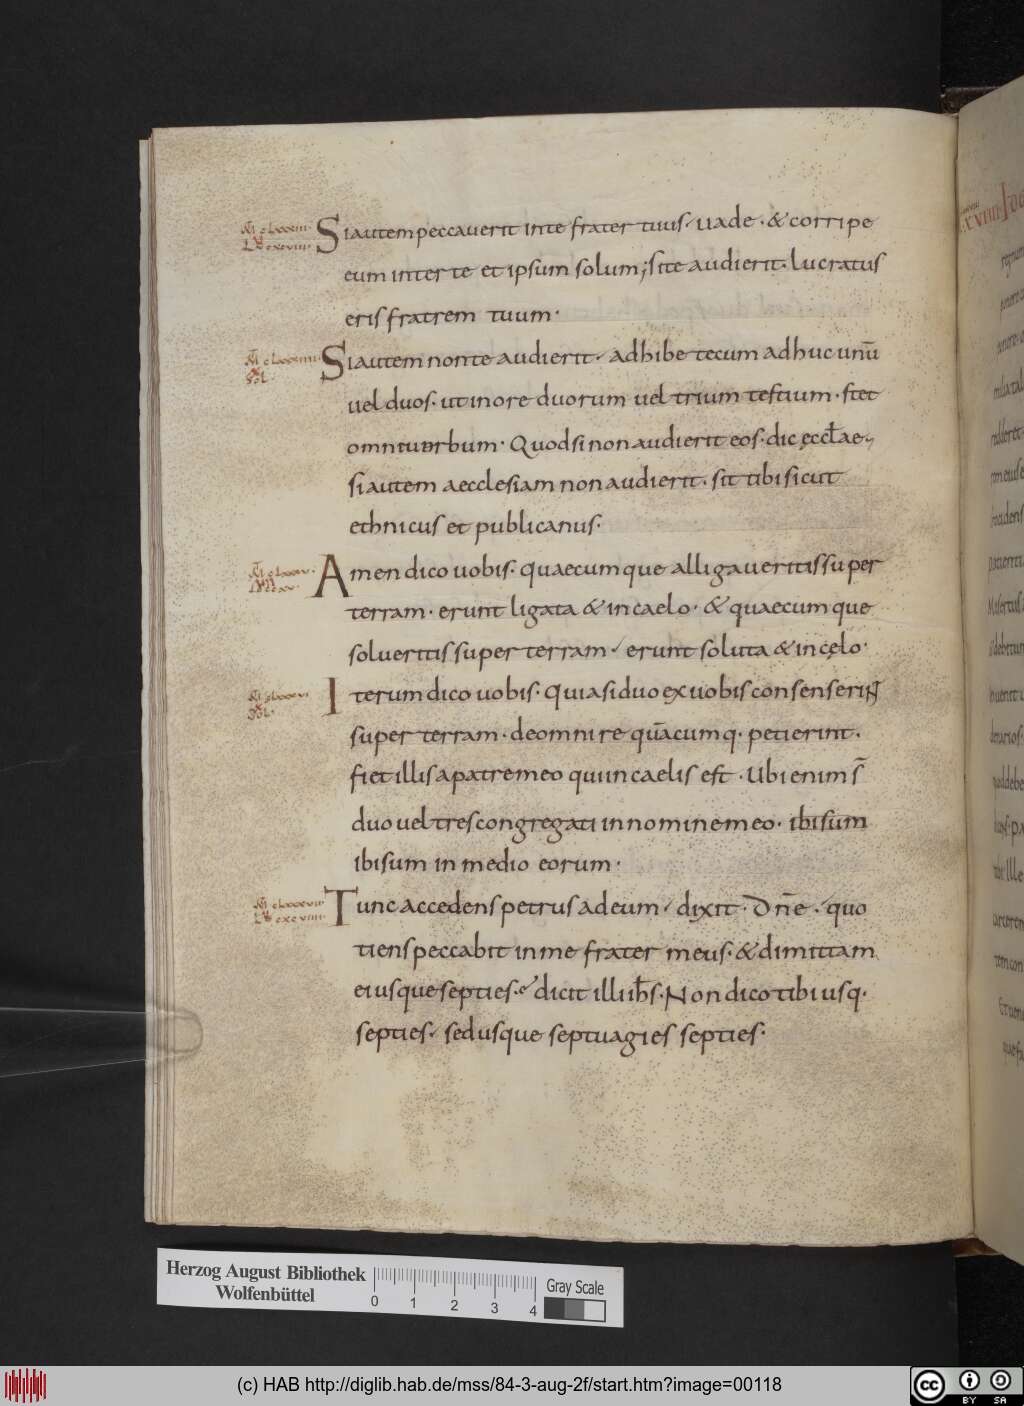 Siautem peccauerit inte frater tuus· uade·&corripe
eum inter te et ipsum solum; site audierit· lucratus
eris fratrem tuum·
Siautem nonte audierit· adhibe tecum adhuc unū
uel duos· ut inore duorum uel trium testium· stet
omne uerbum· Quodsi non audierit eos· dic ęccłae
siautem aecclesiam non audierit· sit tibi sicut
ethnicus et publicanus·
Amen dico uobis· quaecumque alligaueritis super
terram· erunt ligata & incaelo· & quaecumque
solueritis super terram· erunt soluta & incęlo·
Iterum dico uobis· quia si duo exuobis consenserint
super terram· deomni re quācumq· petierint·
fiet illis apatre meo qui incaelis est· Ubi enim s̄
duo uel tres congregati innomine meo· ibi sum
ibi sum in medio eorum·
Tunc accedens petrus adeum· dixit· Dn̄e· quo
tiens peccabit inme frater meus· & dimittam
ei usque septies· dicit illi ihs̄· Non dico tibi usq·
septies· sed usque septuagies septies·
Herzog August Bibliothek
Wolfenbüttel
0 1 2 3 4
Gray Scale
(c) HAB http://diglib.hab.de/mss/84-3-aug-2f/start.htm?image=00118
cc BY SA